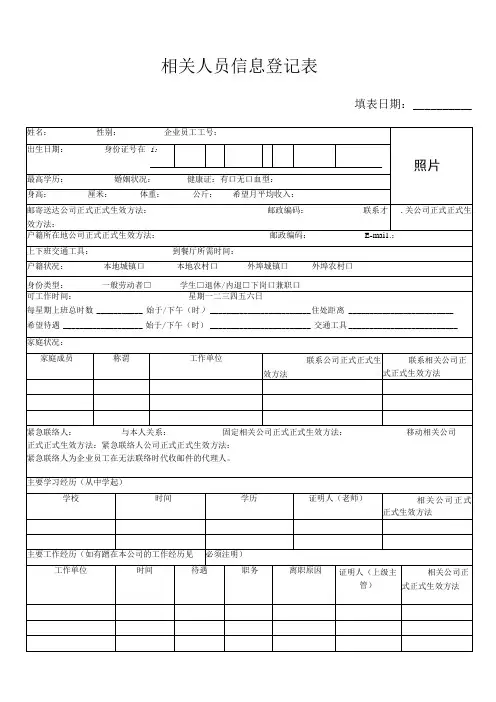 相关人员信息登记表
填表日期：__________
姓名： 性别： 企业员工工号：
出生日期： 身份证号在 1：
照片
最高学历； 婚姻状况； 健康证：有口无口血型：
身高： 厘米： 体重： 公斤； 希望月平均收入：
邮寄送达公司正式正式生效方法： 邮政编码： 联系才 . 关公司正式正式生
效方法：
户籍所在地公司正式正式生效方法： 邮政编码： E-mai1.；
上下班交通工具： 到餐厅所需时间：
户籍状况： 本地城镇口 本地农村口 外埠城镇口 外埠农村口
身份类型： 一般劳动者□ 学生□退休/内退□下岗口兼职口
可工作时间： 星期一二三四五六日
每星期上班总时数 __________ 始于/下午（时）____________________住处距离 ____________________
希望待遇 ______________ 始于/下午（时） ____________________ 交通工具____________________
家庭状况：
家庭成员 称谓 工作单位 联系公司正式正式生 联系相关公司正
效方法 式正式生效方法
紧急联络人： 与本人关系： 固定相关公司正式正式生效方法； 移动相关公司
正式正式生效方法：紧急联络人公司正式正式生效方法：
紧急联络人为企业员工在无法联络时代收邮件的代理人。
主要学习经历（从中学起）
学校 时间 学历 证明人（老师） 相关公司正式
正式生效方法
主要工作经历（如有蹭在本公司的工作经历见 必须注明）
工作单位 时间 待遇 职务 离职原因 证明人（上级主 相关公司正
管） 式正式生效方法